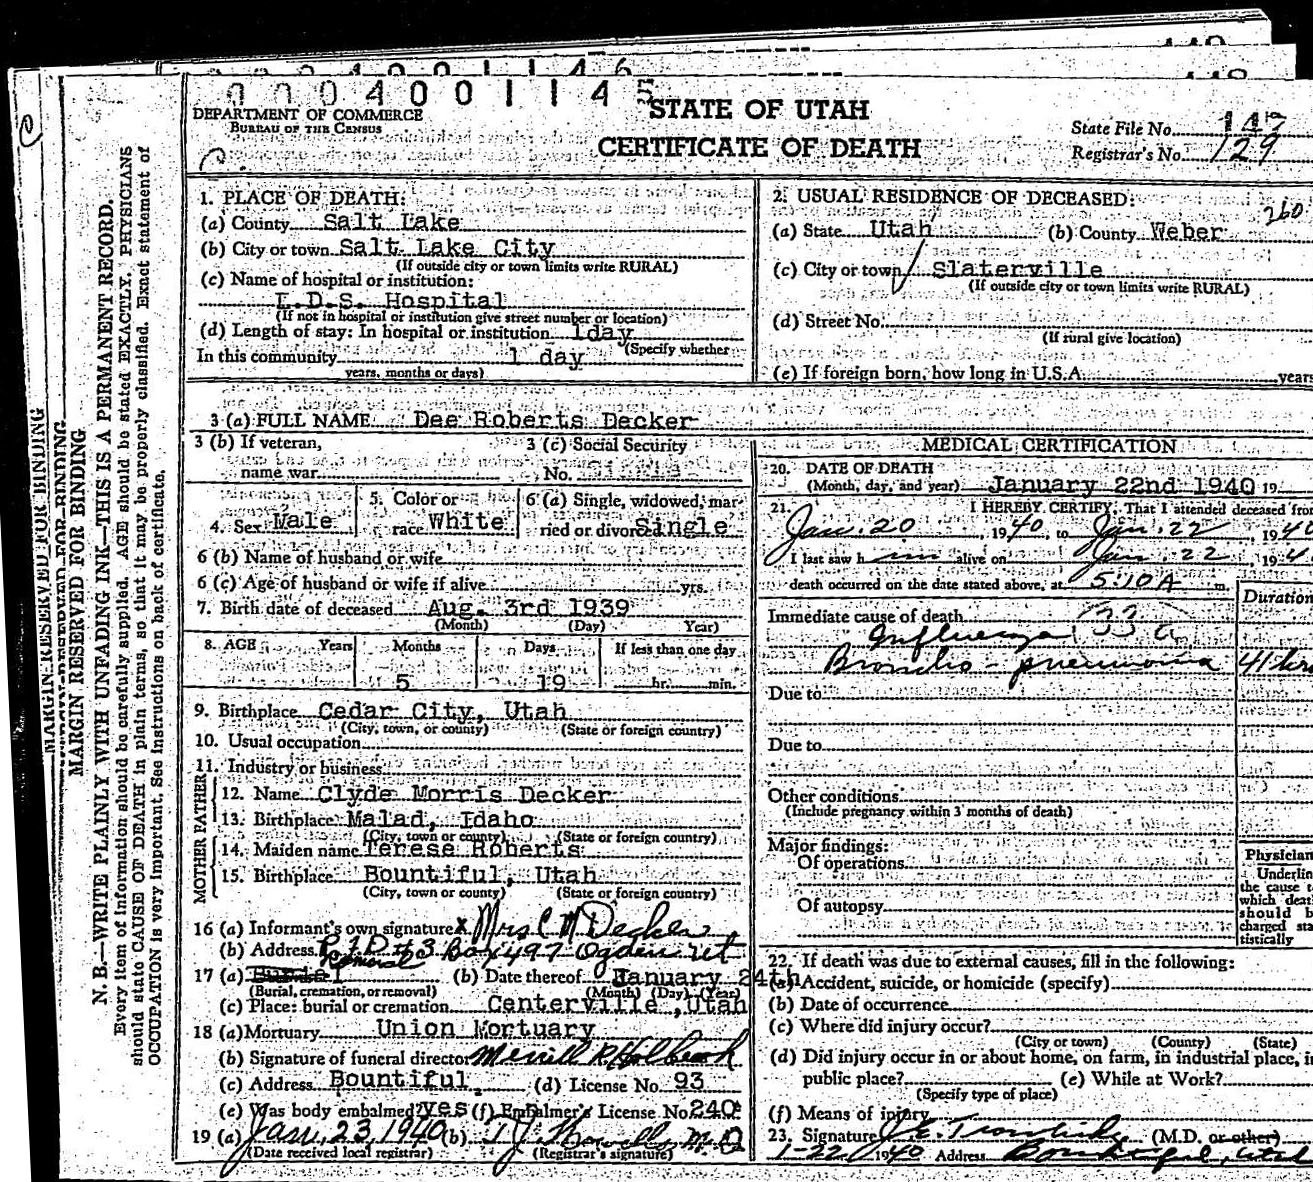 0 0 0 4 0 0 1 1 4 5
DEPARTMENT OF COMMERCE
BUREAU OF THE CENSUS
STATE OF UTAH
CERTIFICATE OF DEATH
State File No. 147
Registrar's No. 129
MARGIN RESERVED FOR BINDING
MARGIN RESERVED FOR BINDING
N. B.—WRITE PLAINLY WITH UNFADING INK—THIS IS A PERMANENT RECORD.
Every item of information should be carefully supplied. AGE should be stated EXACTLY. PHYSICIANS
should state CAUSE OF DEATH in plain terms, so that it may be properly classified. Exact statement of
OCCUPATION is very important. See instructions on back of certificate.
1. PLACE OF DEATH:
(a) County Salt Lake
(b) City or town Salt Lake City
(If outside city or town limits write RURAL)
(c) Name of hospital or institution:
L.D.S. Hospital
(If not in hospital or institution give street number or location)
(d) Length of stay: In hospital or institution 1day
(Specify whether
In this community 1 day
years, months or days)
2. USUAL RESIDENCE OF DECEASED:
260
(a) State Utah (b) County Weber
(c) City or town Slaterville
(If outside city or town limits write RURAL)
(d) Street No.
(If rural give location)
(e) If foreign born, how long in U.S.A. years
3 (a) FULL NAME Dee Roberts Decker
3 (b) If veteran, 3 (c) Social Security
name war No.
4. Sex Male 5. Color or race White 6 (a) Single, widowed, married or divorced Single
6 (b) Name of husband or wife
6 (c) Age of husband or wife if alive yrs.
7. Birth date of deceased Aug. 3rd 1939
(Month) (Day) Year)
8. AGE Years Months Days If less than one day
5 19 hr. min.
9. Birthplace Cedar City, Utah
(City, town, or county) (State or foreign country)
10. Usual occupation
11. Industry or business
FATHER
12. Name Clyde Morris Decker
13. Birthplace Malad, Idaho
(City, town or county) (State or foreign country)
MOTHER
14. Maiden name Terese Roberts
15. Birthplace Bountiful, Utah
(City, town or county) (State or foreign country)
16 (a) Informant's own signature x Mrs C M Decker
(b) Address R.F.D #3 Box 497 Ogden Ut
17 (a) Burial Removal (b) Date thereof January 24th
(Burial, cremation, or removal) (Month) (Day) (Year)
(c) Place: burial or cremation Centerville ,Utah
18 (a) Mortuary Union Mortuary
(b) Signature of funeral director Merrill R Holbrook
(c) Address Bountiful, (d) License No. 93
(e) Was body embalmed? yes (f) Embalmer's License No. 240
19 (a) Jan. 23, 1940 (b) T J Howells, M.D
(Date received local registrar) (Registrar's signature)
MEDICAL CERTIFICATION
20. DATE OF DEATH
(Month, day, and year) January 22nd 1940 19
21. I HEREBY CERTIFY, That I attended deceased from
Jan. 20, 1940, to Jan. 22, 1940
I last saw h im alive on Jan 22, 194
death occurred on the date stated above, at 5:10 A m.
Duration
Immediate cause of death
Influenza 33 a
Broncho-pneumonia 41 hrs
Due to
Due to
Other conditions
(Include pregnancy within 3 months of death)
Major findings:
Of operations
Of autopsy
Physician
Underlin
the cause t
which deat
should b
charged sta
tistically
22. If death was due to external causes, fill in the following:
(a) Accident, suicide, or homicide (specify)
(b) Date of occurrence
(c) Where did injury occur?
(City or town) (County) (State)
(d) Did injury occur in or about home, on farm, in industrial place, in
public place? (e) While at Work?
(Specify type of place)
(f) Means of injury
23. Signature J. E. Trowbridge (M.D. or other)
1-22 1940 Address Bountiful, Utah